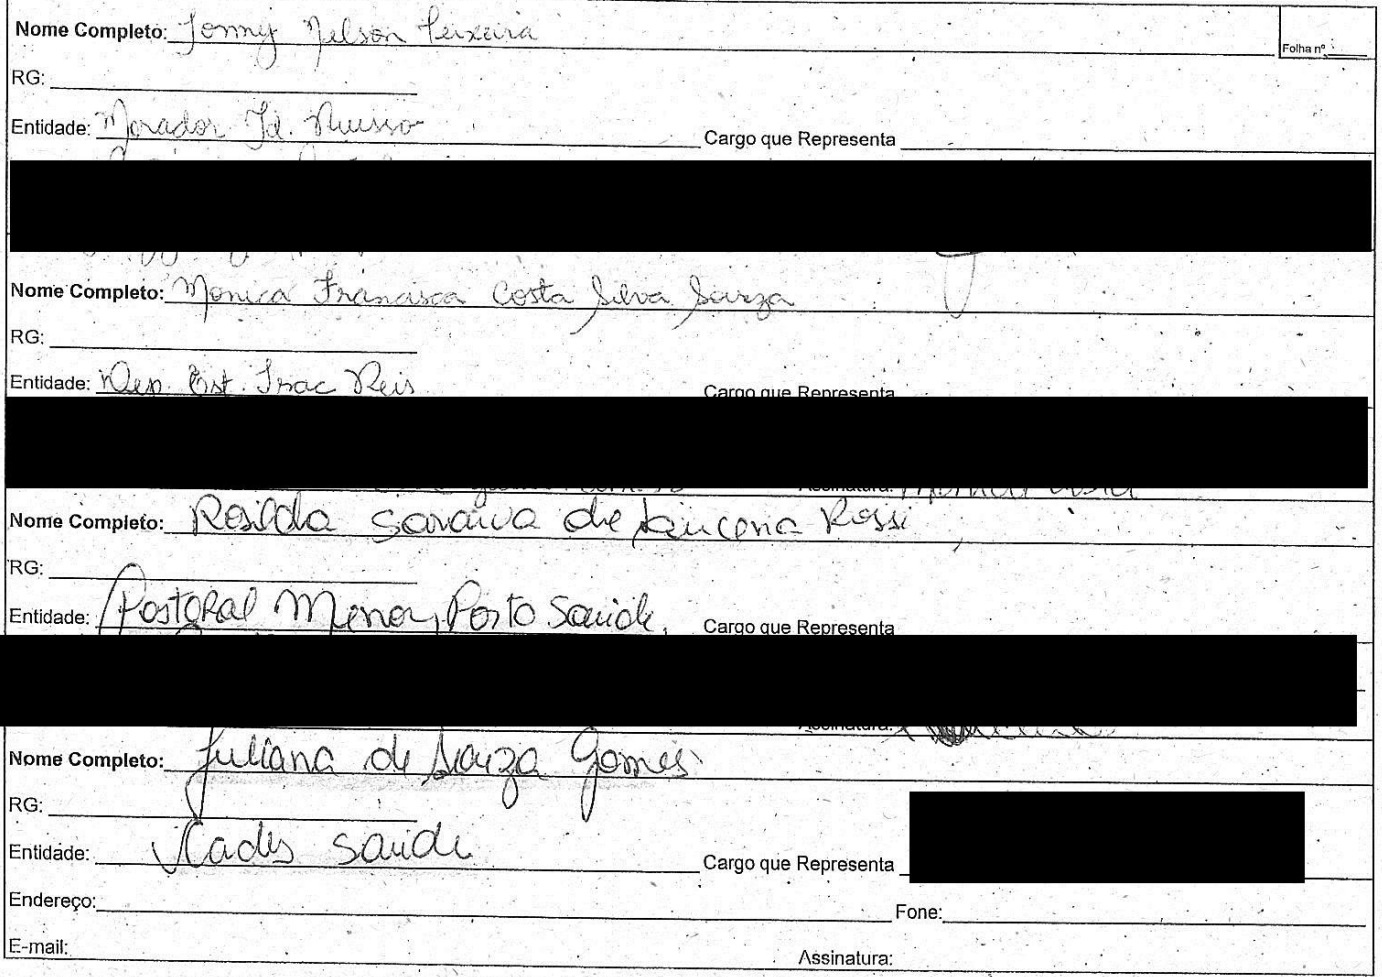 Nome Completo: Jonny Nelson Teixeira
Folha nº
RG:
Entidade: Morador Jd. Cargo que Representa
Nome Completo: Monica Francisca Costa Silva Souza
RG:
Entidade: Dep. Est. Isac Reis Cargo que Representa
Assinatura: Monica Costa
Nome Completo: Rosilda Saraiva de Lucena Rossi
RG:
Entidade: Pastoral Menor, Posto Saúde, Cargo que Representa
Assinatura:
Nome Completo: Juliana de Souza Gomes
RG:
Entidade: Cades saude Cargo que Representa
Endereço: Fone:
E-mail: Assinatura: